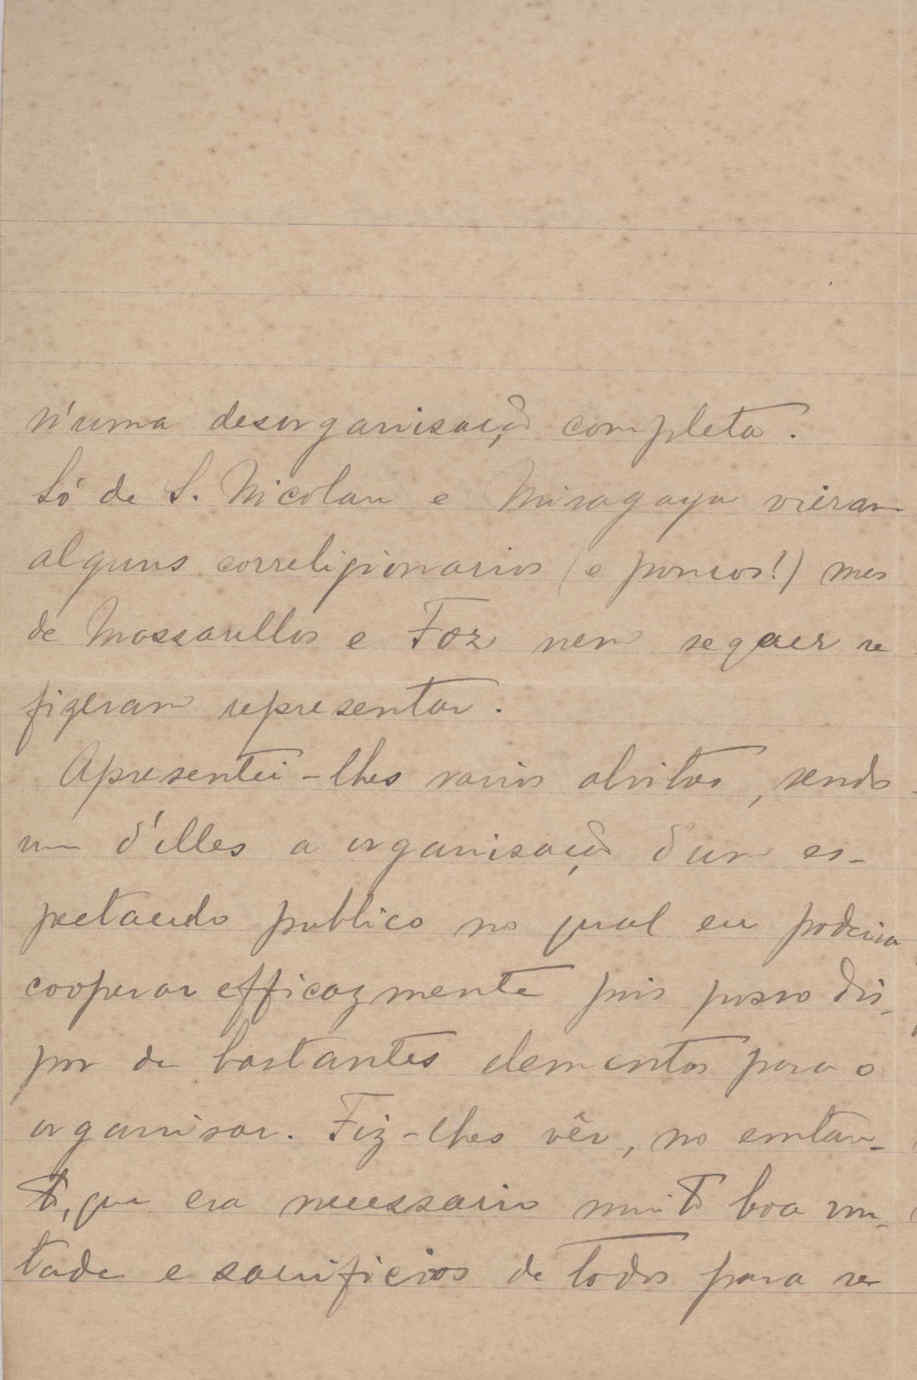 n'uma desorganisação completa.
Só de S. Nicolau e Miragaya vieram
alguns correligionarios (e poucos!) mas
de Massarellos e Foz nem sequer se
fizeram representar.
Apresentei-lhes varios alvitres, sendo
um d'elles a organisação d'um es-
pectaculo publico no qual eu poderia
cooperar efficazmente pois posso dis-
por de bastantes elementos para o
organisar. Fiz-lhes vêr, no emtan-
to, que era necessario muito boa von-
tade e sacrificios de todos para se